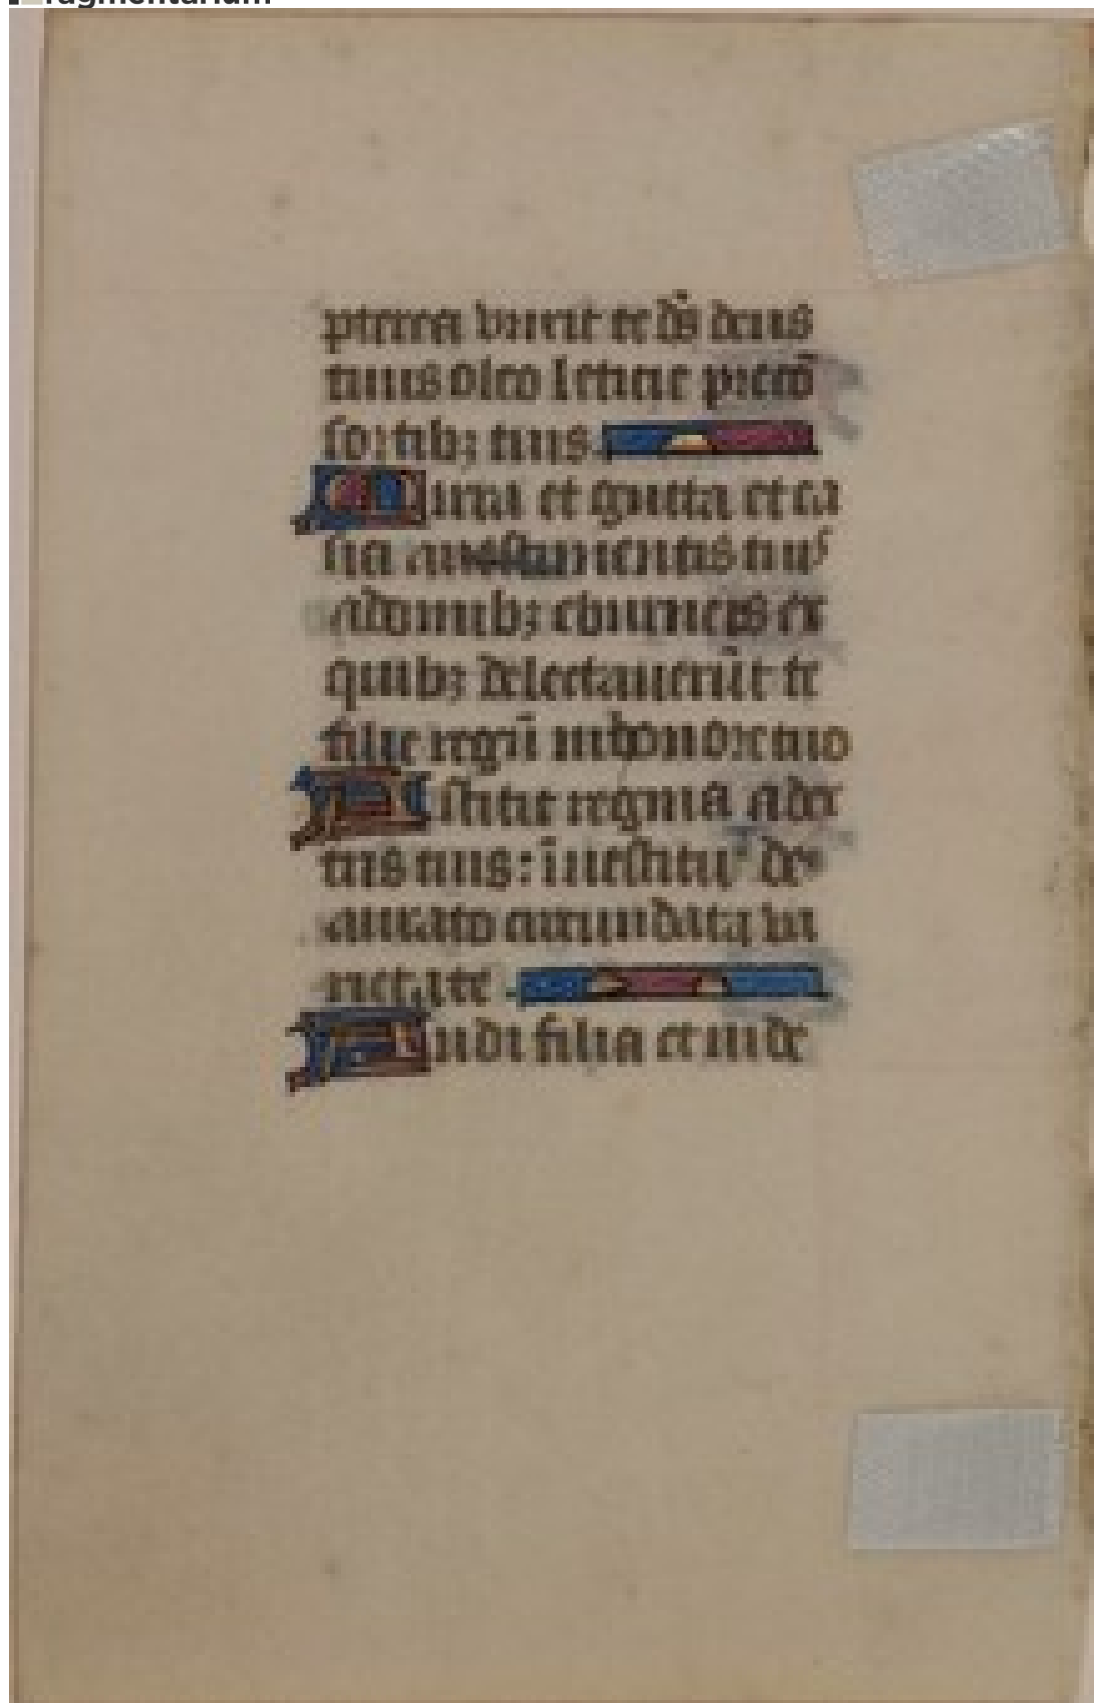 ragmentarium
pterea vnxit te d̄s deus
tuus oleo leticie p̄ c̄o
sortibꝫ tuis
Mirra et gutta et ca
sia a uestimentis tuis
a domibꝫ eburneis ex
quibꝫ delectauerūt te
filie regū in honore tuo
Astitit regina a dex
tris tuis : ī uestitu de
aurato circundata va
rietate
Audi filia et uide